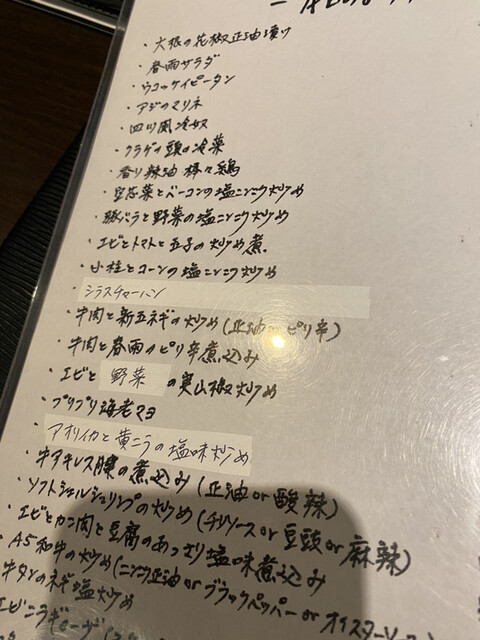 ・大根の花椒正油漬け
・春雨サラダ
・ウコッケイピータン
・アジのマリネ
・四川風冷奴
・クラゲの頭の冷菜
・香り辣油 棒々鶏
・空芯菜とベーコンの塩ニンニク炒め
・豚バラと野菜の塩ニンニク炒め
・エビとトマトと玉子の炒め煮
・小柱とコーンの塩ニンニク炒め
・シラスチャーハン
・牛肉と新玉ネギの炒め(正油 or ピリ辛)
・牛肉と春雨のピリ辛煮込み
・エビと 野菜 の実山椒炒め
・プリプリ海老マヨ
・アオリイカと黄ニラの塩味炒め
・牛アキレス腱の煮込み(正油 or 酸辣)
・ソフトシェルシュリンプの炒め(チリソース or 豆豉 or 麻辣)
・エビとカニ肉と豆腐のあっさり塩味煮込み
・A5和牛の炒め(ニンニク正油 or ブラックペッパー or オイスターソー
牛タンのネギ塩炒め
エビニラギョーザ